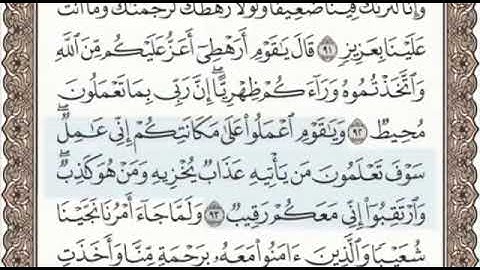 وَإِنَّا لَنَرَىٰكَ فِينَا ضَعِيفًا وَلَوْلَا رَهْطُكَ لَرَجَمْنَٰكَ وَمَآ أَنتَ
عَلَيْنَا بِعَزِيزٍ ۝٩١ قَالَ يَٰقَوْمِ أَرَهْطِىٓ أَعَزُّ عَلَيْكُم مِّنَ ٱللَّهِ
وَٱتَّخَذْتُمُوهُ وَرَآءَكُمْ ظِهْرِيًّا ۖ إِنَّ رَبِّى بِمَا تَعْمَلُونَ
مُحِيطٌ ۝٩٢ وَيَٰقَوْمِ ٱعْمَلُوا۟ عَلَىٰ مَكَانَتِكُمْ إِنِّى عَٰمِلٌ ۖ
سَوْفَ تَعْلَمُونَ مَن يَأْتِيهِ عَذَابٌ يُخْزِيهِ وَمَنْ هُوَ كَٰذِبٌ ۖ
وَٱرْتَقِبُوٓا۟ إِنِّى مَعَكُمْ رَقِيبٌ ۝٩٣ وَلَمَّا جَآءَ أَمْرُنَا نَجَّيْنَا
شُعَيْبًا وَٱلَّذِينَ ءَامَنُوا۟ مَعَهُۥ بِرَحْمَةٍ مِّنَّا وَأَخَذَتِ